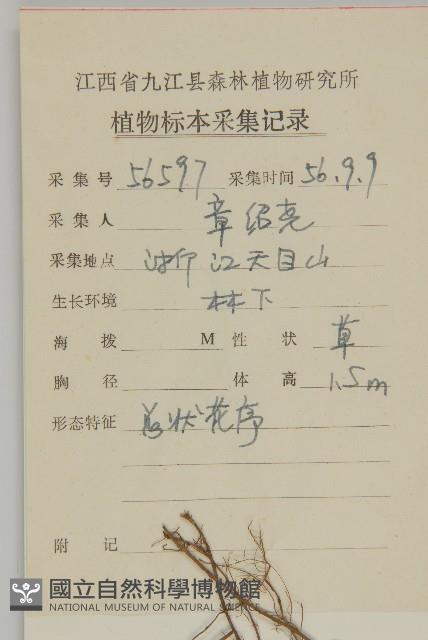 江西省九江县森林植物研究所
植物标本采集记录
采集号 56597 采集时间 56.9.9
采集人 章绍尧
采集地点 浙江天目山
生长环境 林下
海拨 M 性状 草
胸径 体高 1.5m
形态特征 总状花序
附记
國立自然科學博物館
NATIONAL MUSEUM OF NATURAL SCIENCE